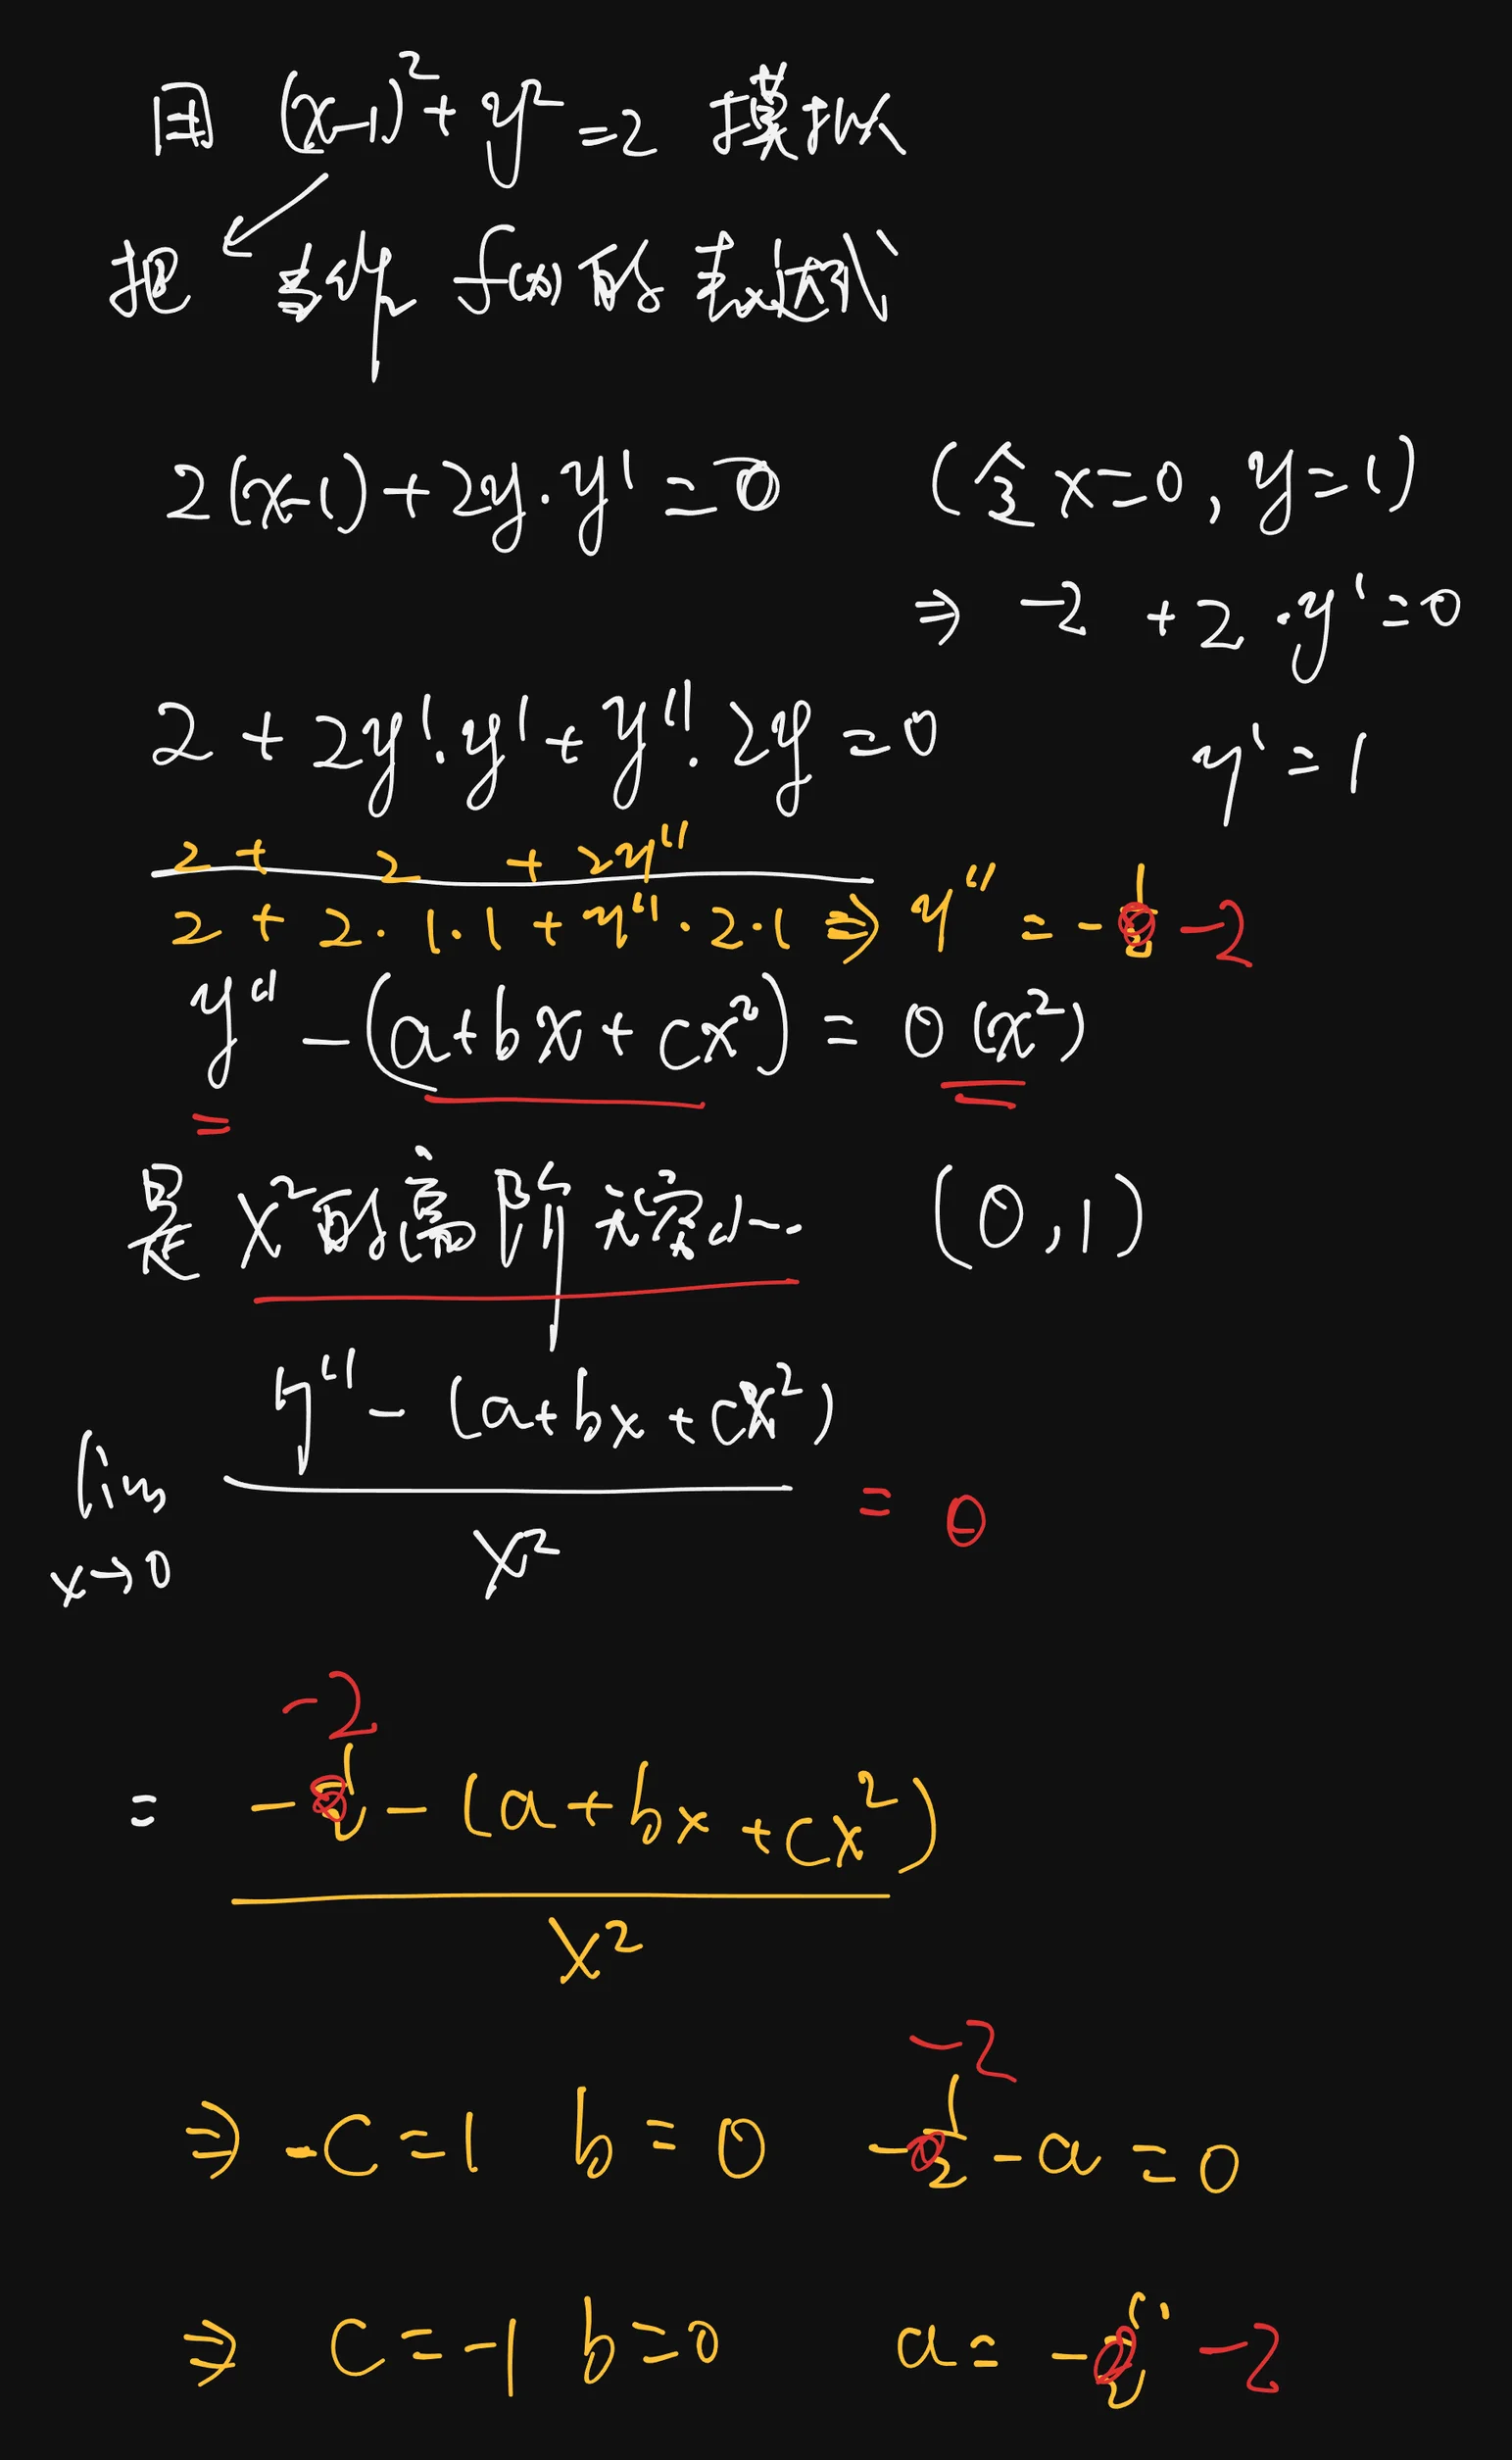 用 (x-1)²+y²=2 模拟
把 f(x)的表达式
2(x-1)+2y·y'=0 (令x=0, y=1)
⇒ -2 +2·y'=0
2+2y'·y'+y''·2y=0 y'=1
2 + 2 + 2y''
2+2·1·1+y''·2·1 ⇒ y''= - -2
y''-(a+bx+cx²)=0(x²)
是x²的高阶无穷小. (0,1)
lim x→0 y''-(a+bx+cx²) / x² = 0
-2
= - -(a+bx+cx²) / x²
-2
⇒ -c=1 b=0 -1/2-a=0
⇒ c=-1 b=0 a= - -2